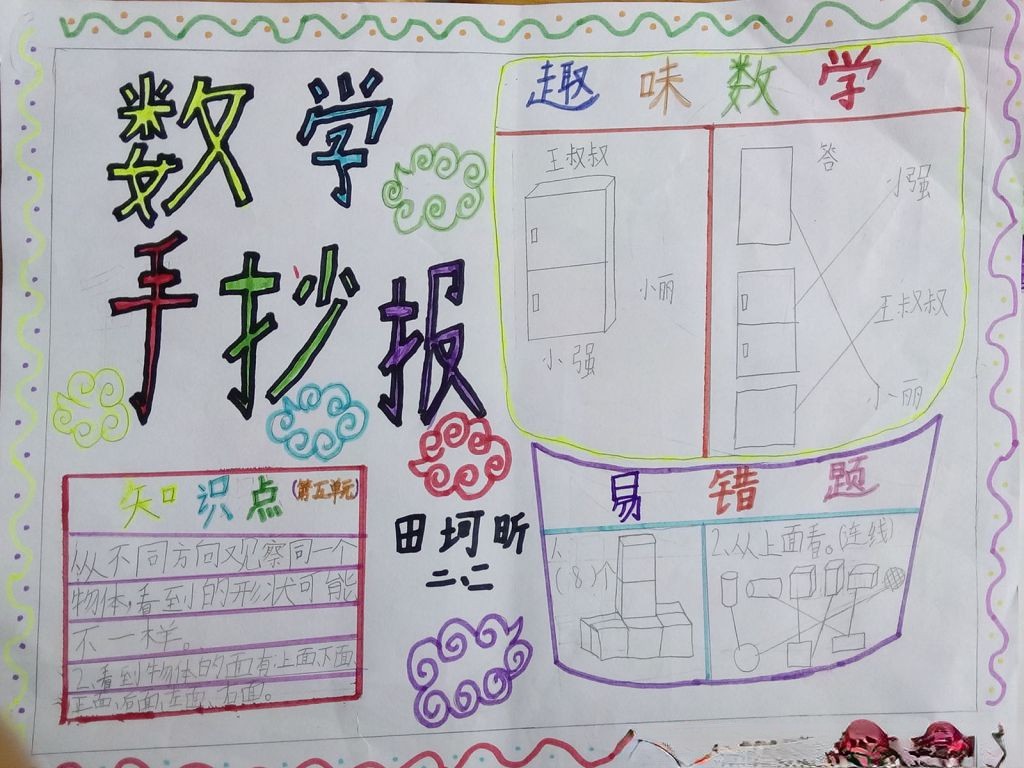 数学
手抄报
趣味数学
王叔叔
小丽
小强
答
小强
王叔叔
小丽
知识点(第五单元)
从不同方向观察同一个
物体,看到的形状可能
不一样。
2、看到物体的面有上面、下面
正面、后面、左面、右面。
田坷昕
二、二
易错题
1、
(8)个
2、从上面看。(连线)